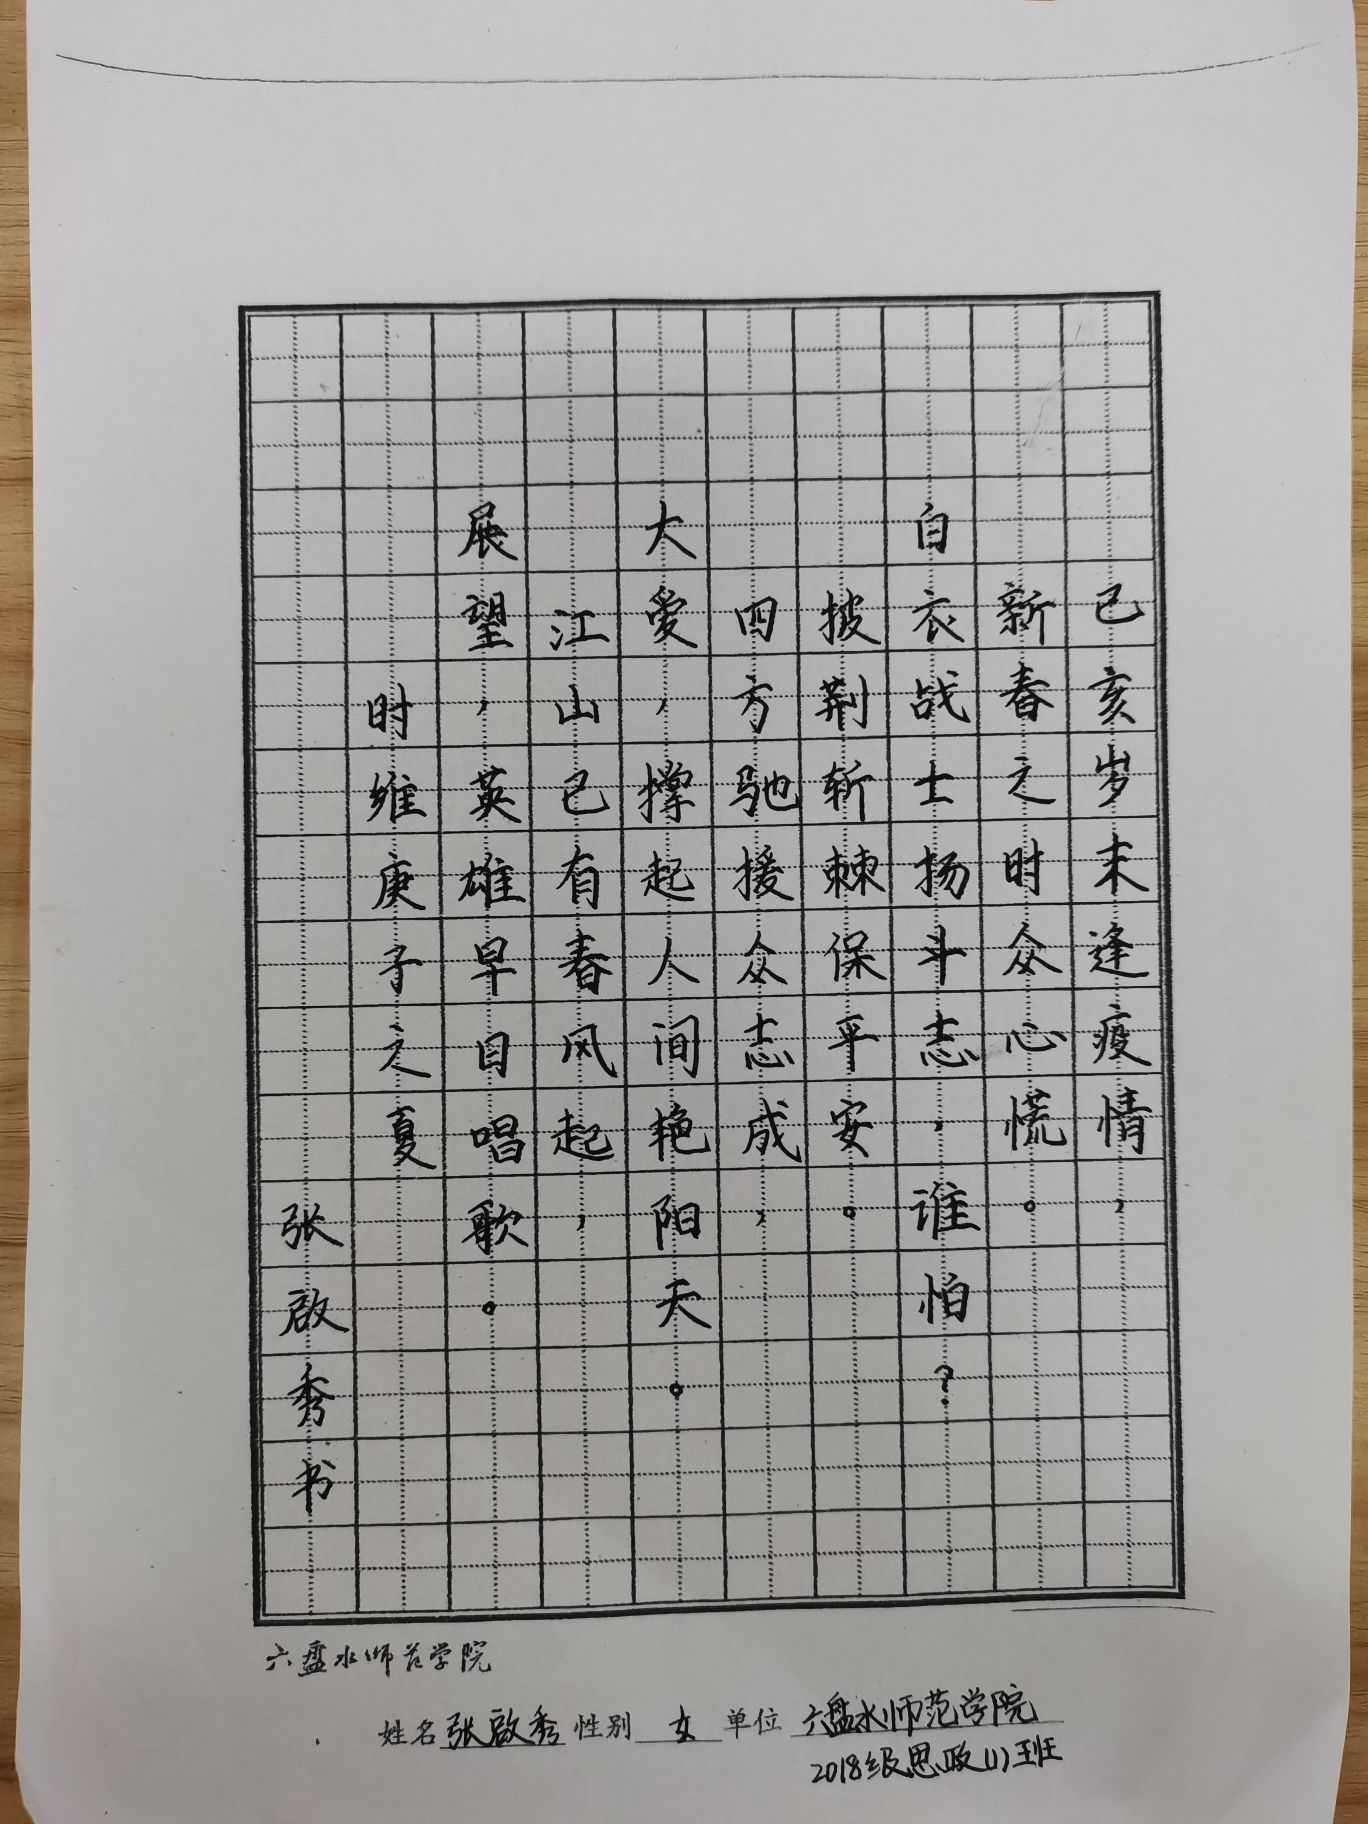 己亥岁末逢疫情，
新春之时众心慌。
白衣战士扬斗志，谁怕？
披荆斩棘保平安。
四方驰援众志成，
大爱，撑起人间艳阳天。
江山已有春风起，
展望，英雄早日唱歌。
时维庚子之夏
张啟秀书
六盘水师范学院
姓名张啟秀性别女单位六盘水师范学院
2018级思政(1)班